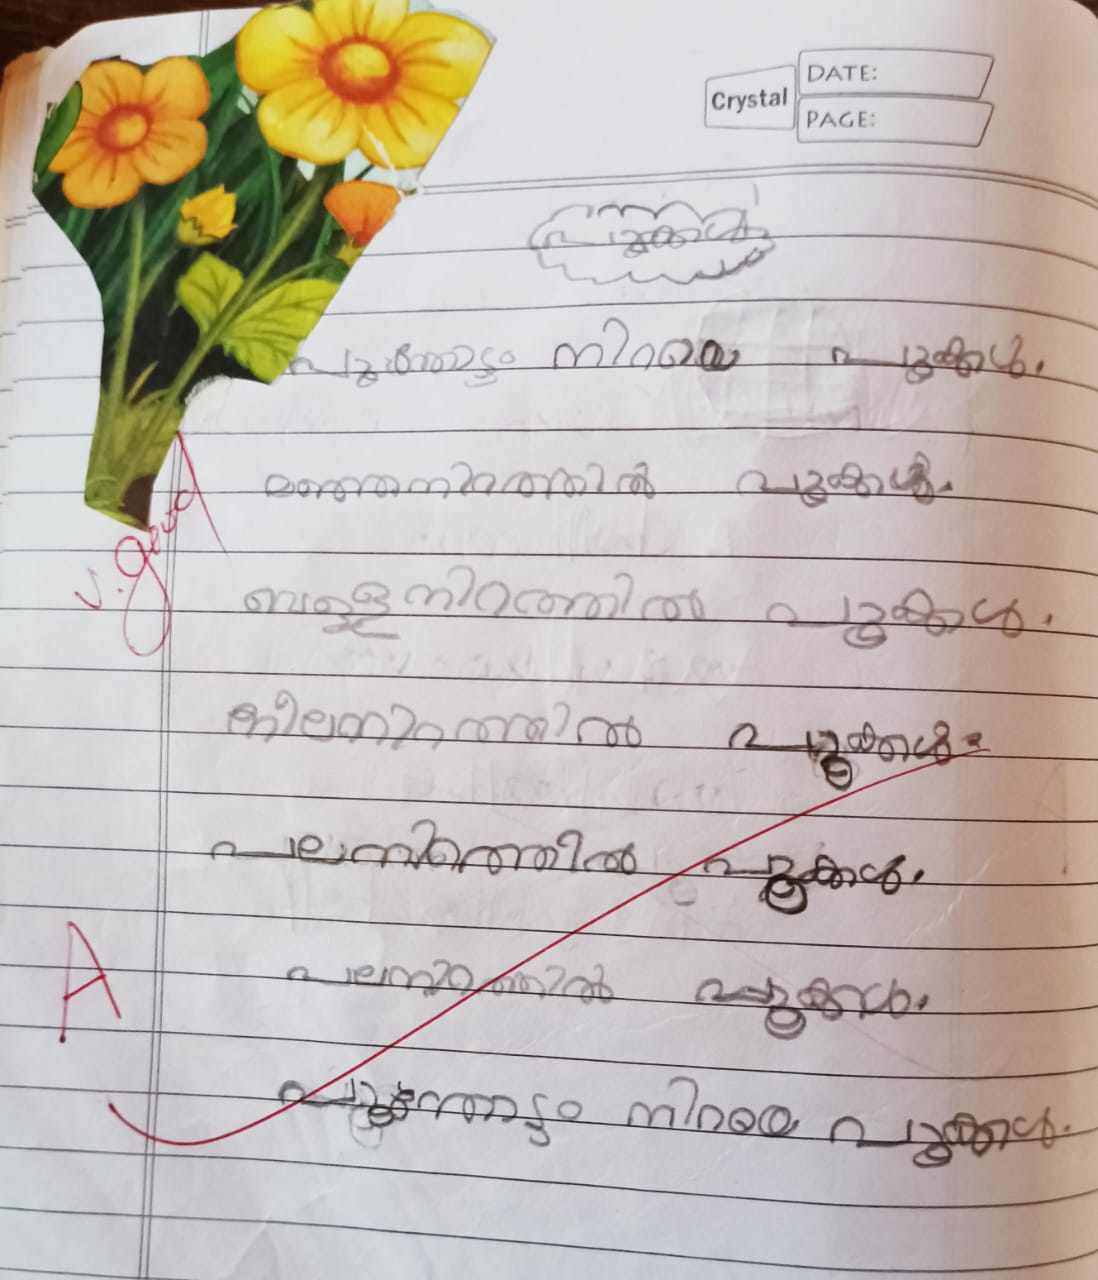 DATE:
Crystal
PAGE:
പൂക്കൾ
പൂന്തോട്ടം നിറയെ പൂക്കൾ.
മഞ്ഞനിറത്തിൽ പൂക്കൾ.
v. good
ബള്ളനിറത്തിൽ പൂക്കൾ.
നീലനിറത്തിൽ പൂക്കൾ.
പലനിറത്തിൽ പൂക്കൾ.
A
പലനിറത്തിൽ പൂക്കൾ.
പൂന്തോട്ടം നിറയെ പൂക്കൾ.